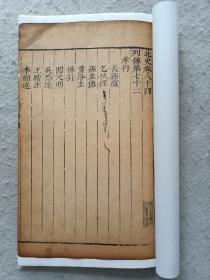 北史卷八十四
列傳第七十二
孝行
長孫慮
乞伏保
孫益德
董洛生
楊引
閻元明
吳悉達
王續生
李顯達